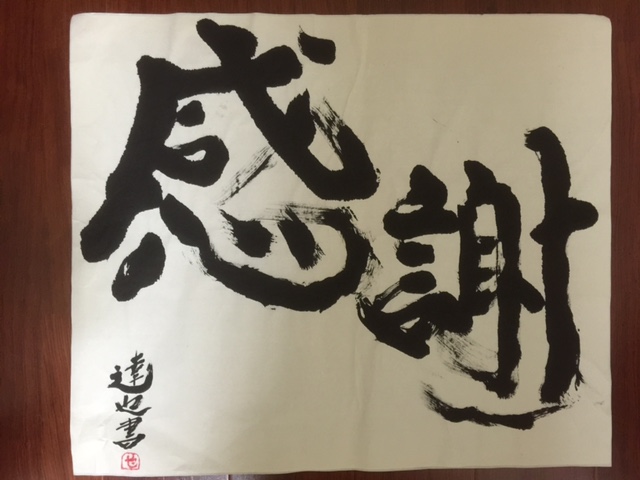 感謝
達也書